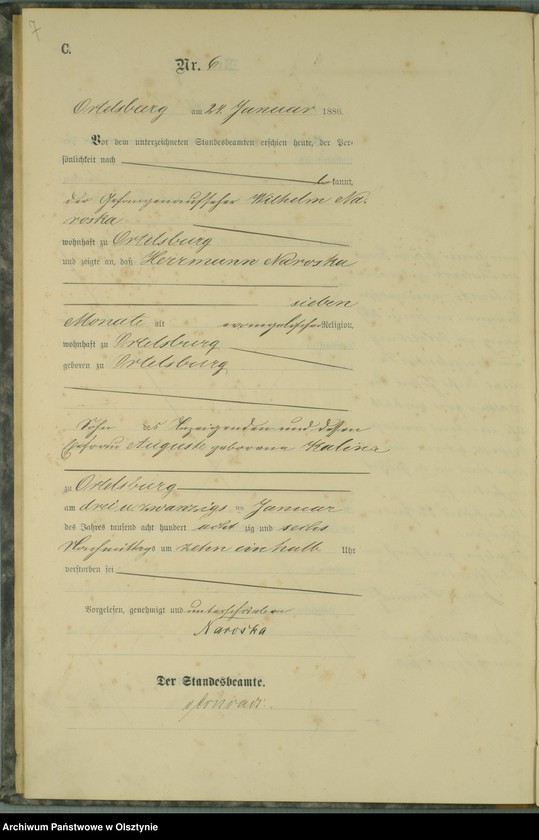 7
C.
Nr. 6
Ortelsburg am 24. Januar 1886.
Vor dem unterzeichneten Standesbeamten erschien heute, der Per-
sönlichkeit nach
be kannt,
der Gefangenaufseher Wilhelm Na-
roska
wohnhaft zu Ortelsburg
und zeigte an, daß Herrmann Naroska
sieben
Monate alt evangelischer Religion,
wohnhaft zu Ortelsburg
geboren zu Ortelsburg
Sohn des Anzeigenden und dessen
Ehefrau Auguste geborene Kalina
zu Ortelsburg
am drei u. zwanzigsten Januar
des Jahres tausend acht hundert acht zig und sechs
Nachmittags um zehn ein halb Uhr
verstorben sei
Vorgelesen, genehmigt und unterschrieben
Naroska
Der Standesbeamte.
Archiwum Państwowe w Olsztynie